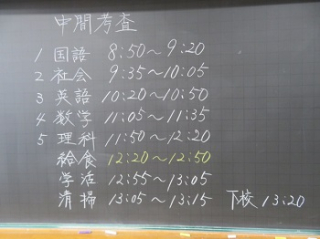 中間考査
1 国語 8:50～9:20
2 社会 9:35～10:05
3 英語 10:20～10:50
4 数学 11:05～11:35
5 理科 11:50～12:20
給食 12:20～12:50
学活 12:55～13:05
清掃 13:05～13:15 下校 13:20